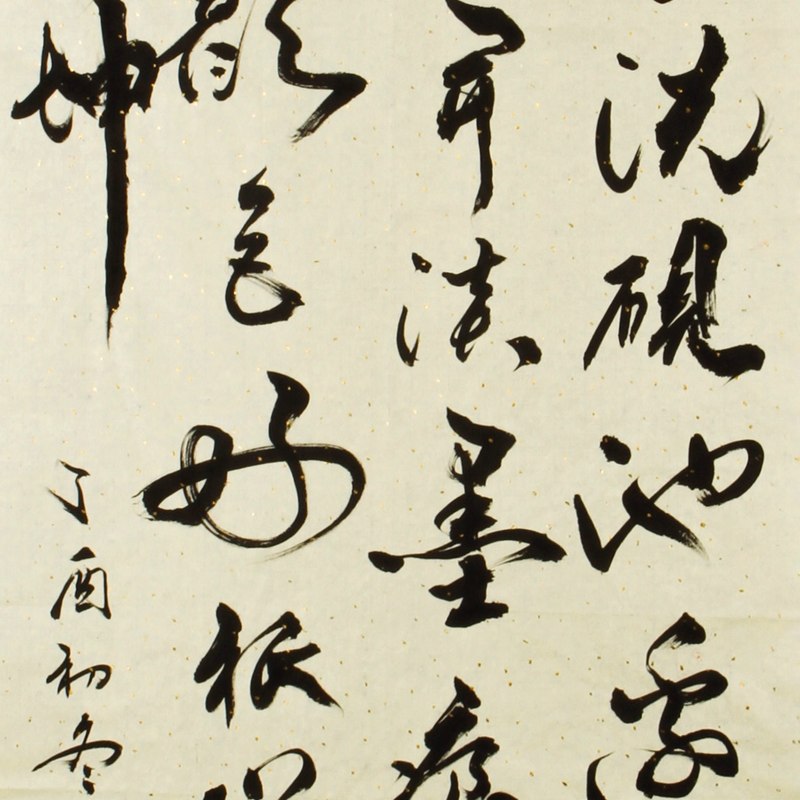 洗硯池邊
開淡墨痕
顏色好祇
坤
丁酉初冬